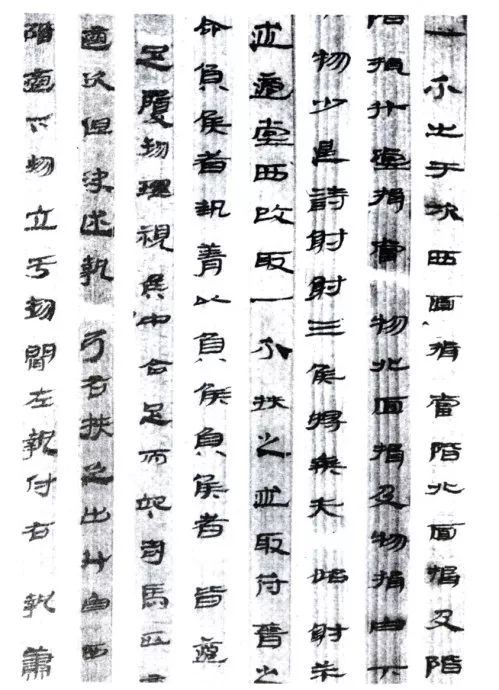 一个出于次西面揖當階北面揖及階
階揖升堂揖當物北面揖及物揖由下
物少退誘射射三侯將乘矢始射
述適堂西改取一个挾之述取扑晉之
命負侯者執旌以負侯負侯者皆適
足履物還視侯中合足而俟司馬正
適次但決述執弓右挾之出升自西
階適下物立于物間左執付右執蕭